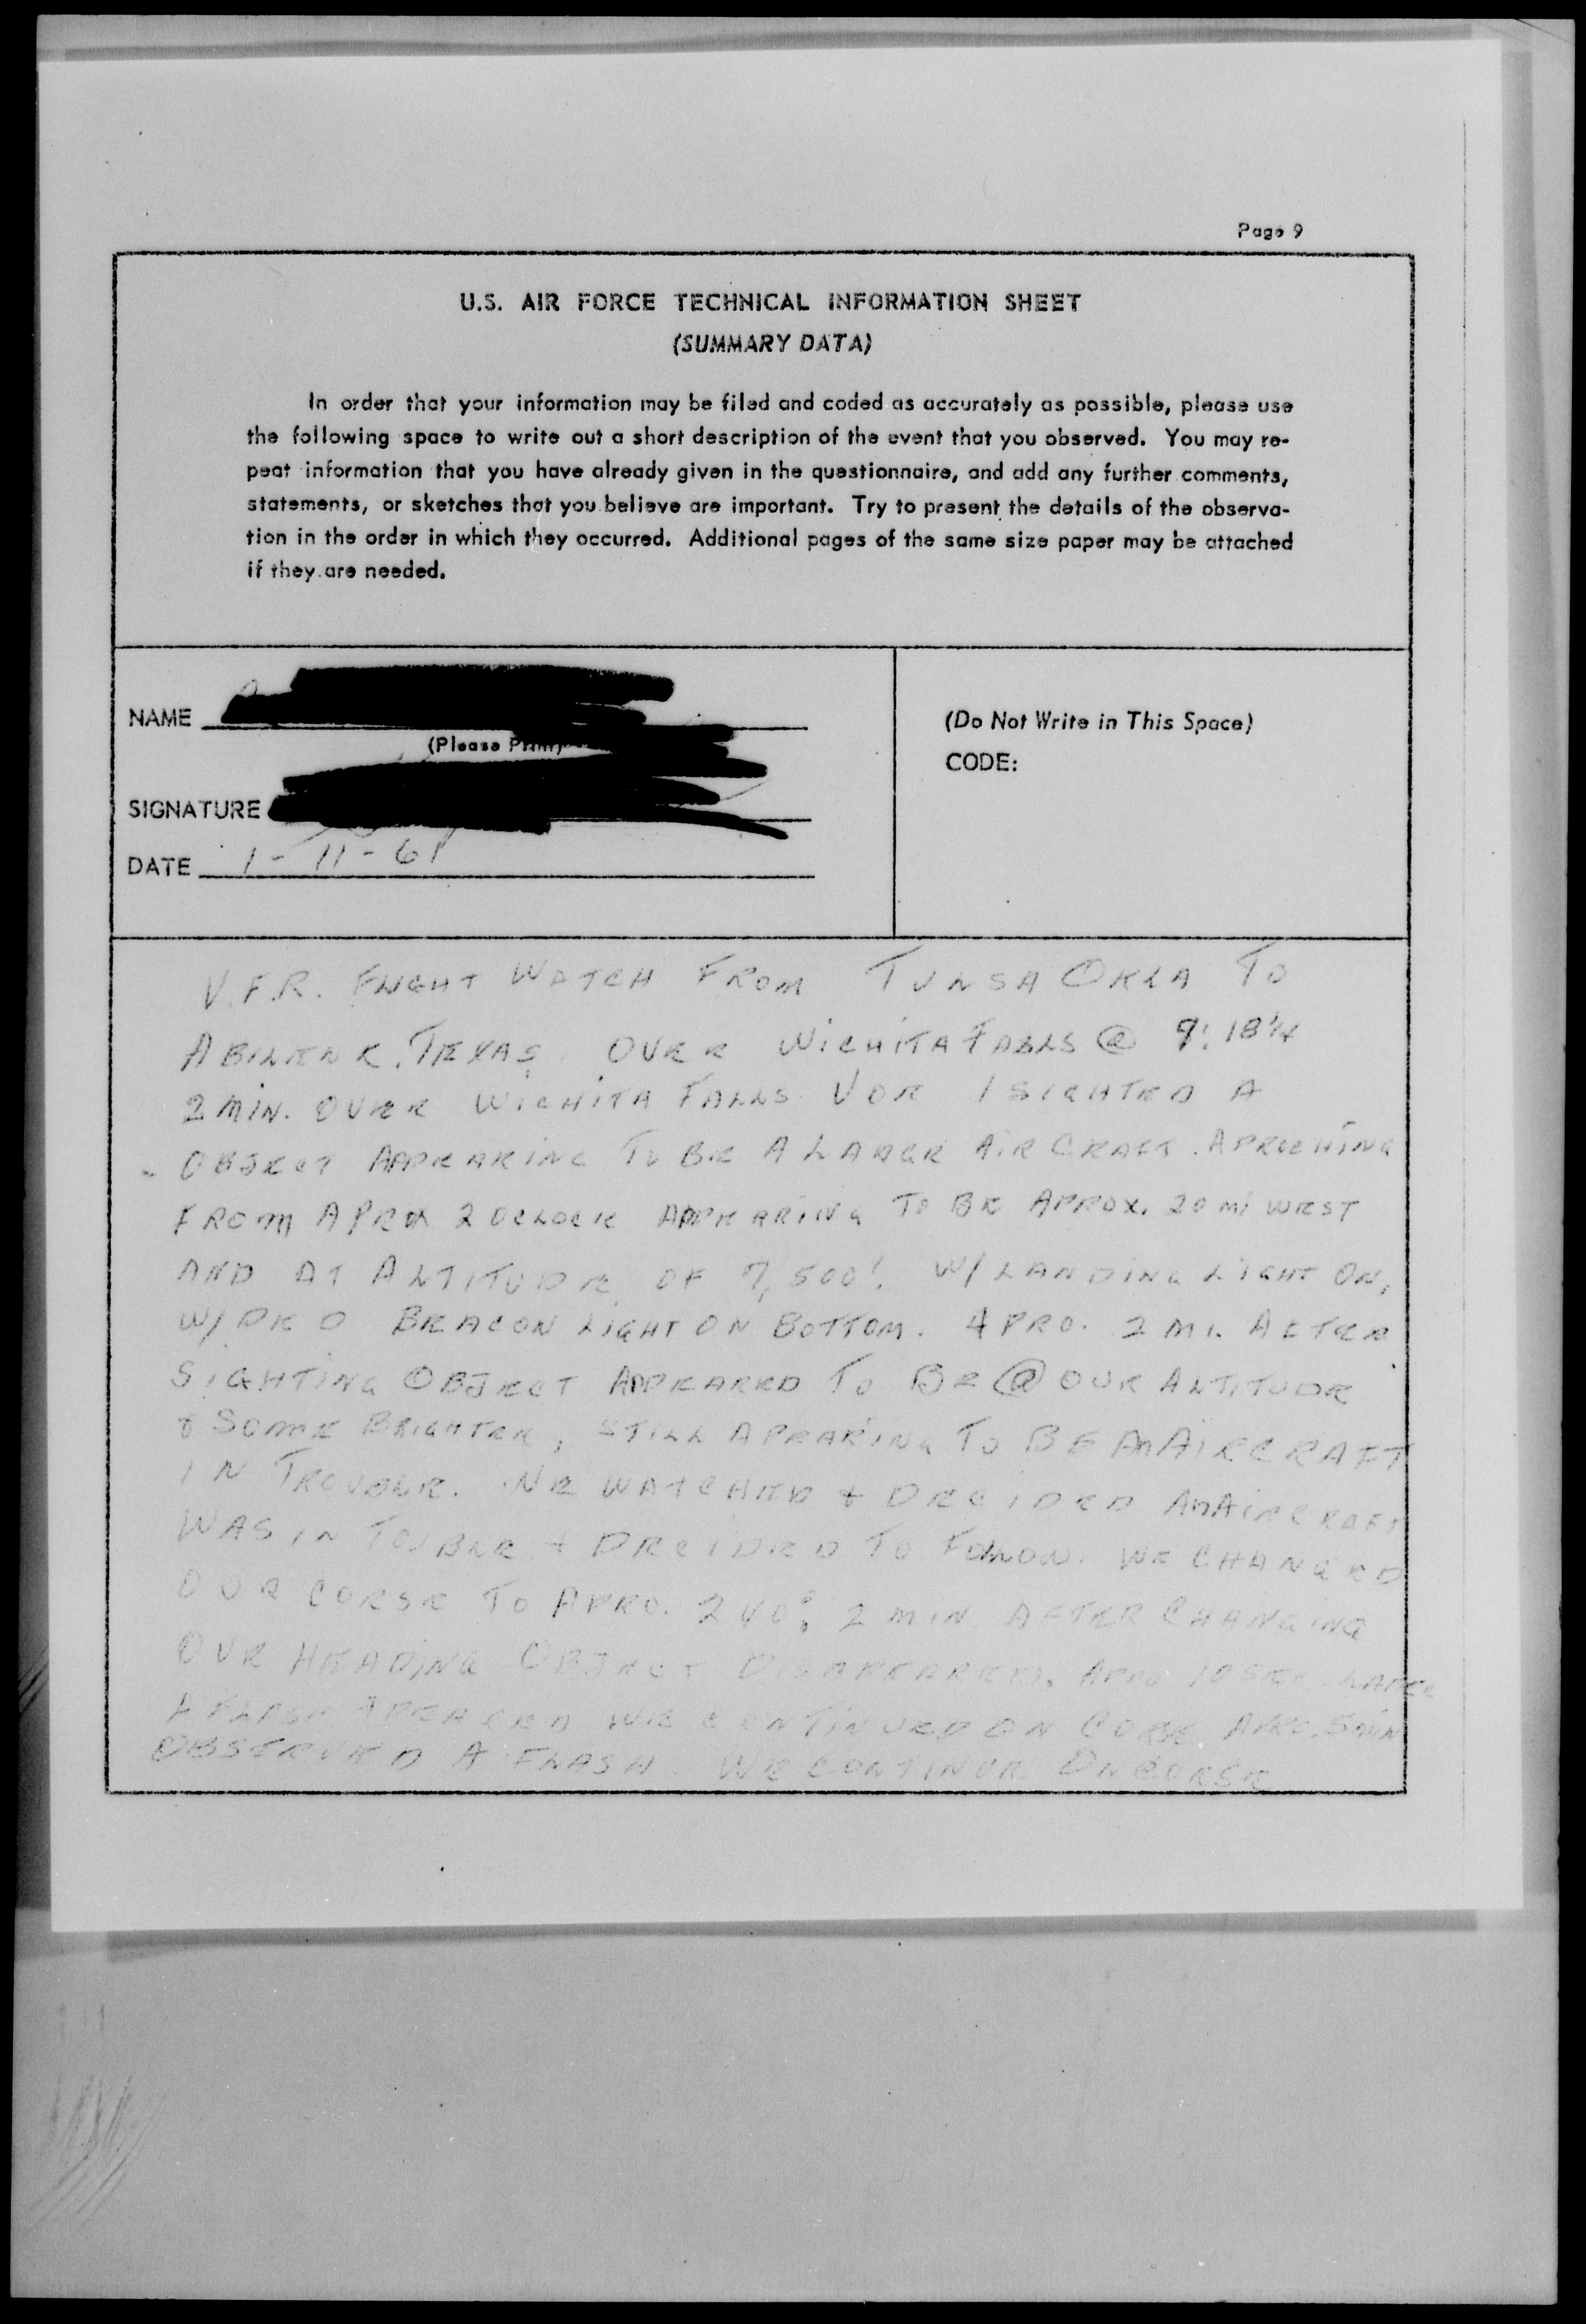 Page 9
U.S. AIR FORCE TECHNICAL INFORMATION SHEET
(SUMMARY DATA)
In order that your information may be filed and coded as accurately as possible, please use
the following space to write out a short description of the event that you observed. You may re-
peat information that you have already given in the questionnaire, and add any further comments,
statements, or sketches that you believe are important. Try to present the details of the observa-
tion in the order in which they occurred. Additional pages of the same size paper may be attached
if they are needed.
NAME
(Please Print)
(Do Not Write in This Space)
CODE:
SIGNATURE
DATE 1-11-61
V.F.R. FLIGHT WATCH FROM TULSA OKLA TO
ABILENE, TEXAS. OVER WICHITA FALLS @
2 MIN. OVER WICHITA FALLS VOR I SIGHTED A
OBJECT APPEARING TO BE A LARGE AIRCRAFT. APROCHING
FROM APROX 2 OCLOCK APPEARING TO BE APROX. 20 mi WEST
AND AT ALTITUDE OF 7,500'. W/ LANDING LIGHT ON,
W/ BEACON LIGHT ON BOTTOM. APRO. 2 MI. AFTER
SIGHTING OBJECT APPEARED TO BE @ OUR ALTITUDE
& SOME BRIGHTER, STILL APEARING TO BE AN AIRCRAFT
IN TROUBLE. WE WATCHED + DECIDED AN AIRCRAFT
WAS IN TOUBLE + DECIDED TO FOLLOW. WE CHANGED
OUR CORSE TO APRO. 240°. 2 MIN AFTER CHANGING
OUR HEADING OBJECT DISAPEARED. APRO 10 SEC. LATER
A FLASH APEARED WE CONTINUED ON CORSE. APRO. 5 MIN
OBSERVED A FLASH. WE CONTINUE ON CORSE